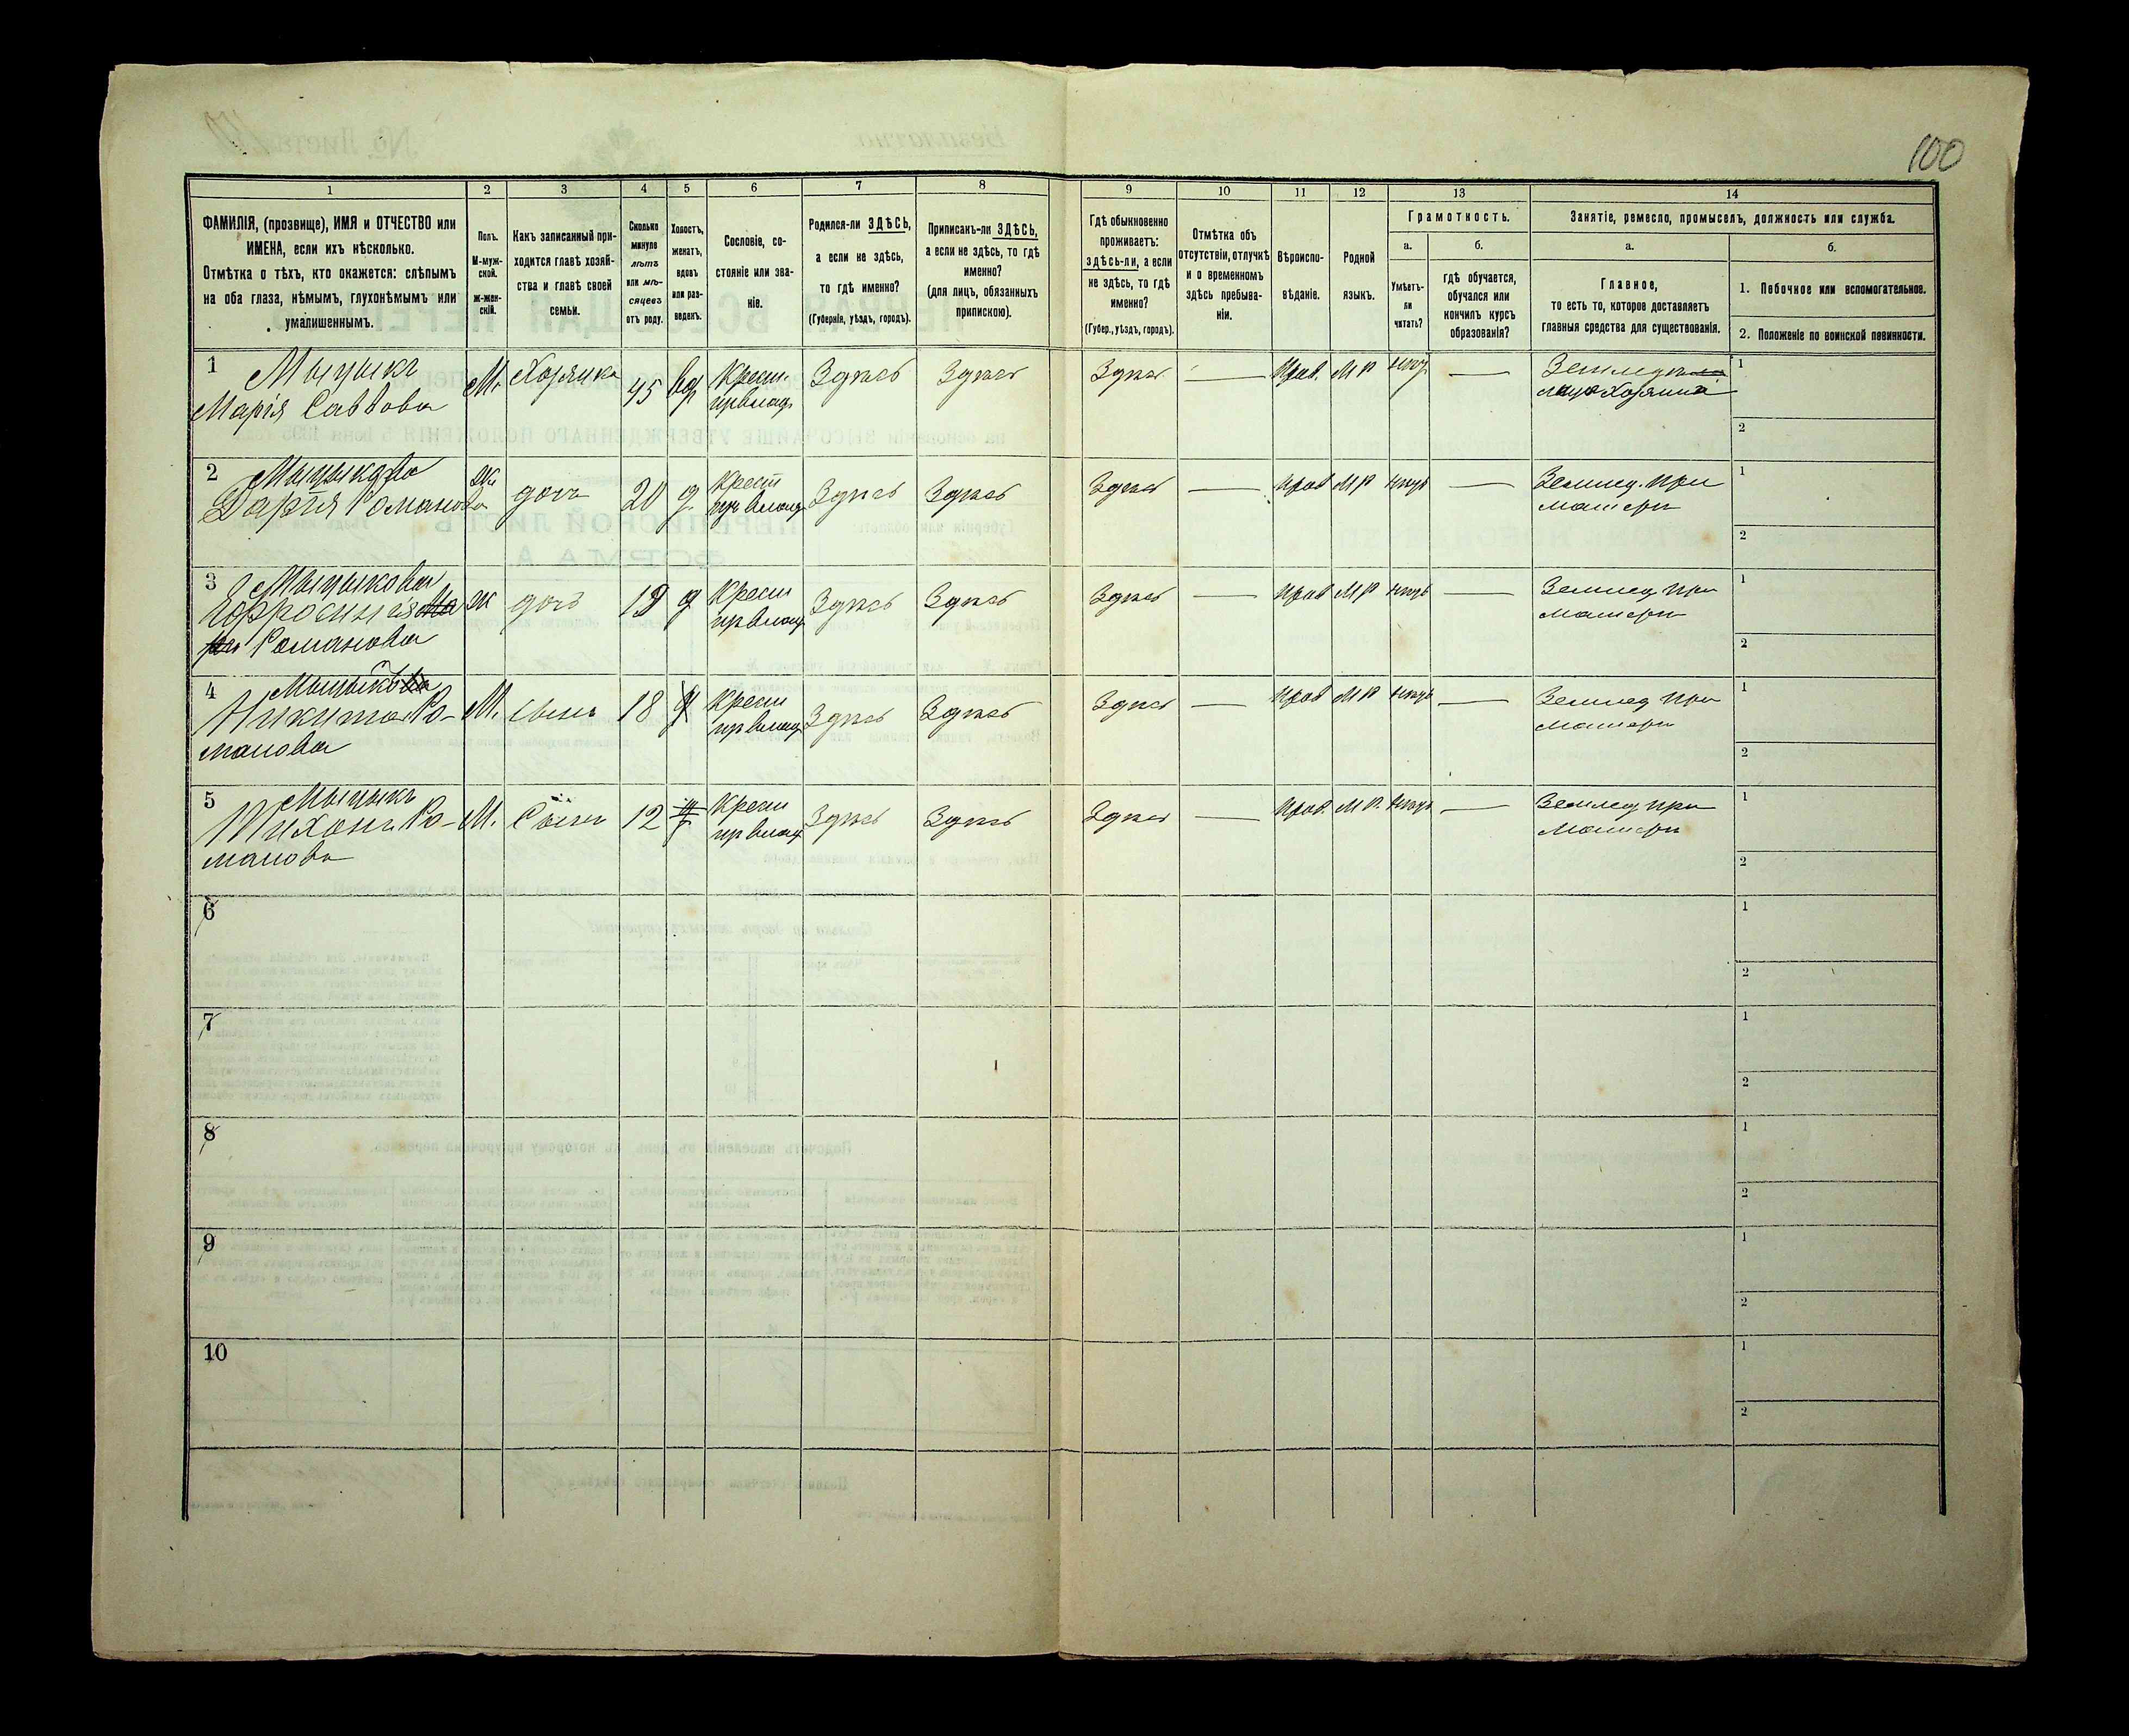 100
1 2 3 4 5 6 7 8 9 10 11 12 13 14
ФАМИЛІЯ, (прозвище), ИМЯ и ОТЧЕСТВО или
ИМЕНА, если ихъ нѣсколько.
Отмѣтка о тѣхъ, кто окажется: слѣпымъ
на оба глаза, нѣмымъ, глухонѣмымъ или
умалишеннымъ.
Полъ.
М-муж-
ской.
ж-жен-
скій.
Какъ записанный при-
ходится главѣ хозяй-
ства и главѣ своей
семьи.
Сколько
минуло
лѣтъ
или мѣ-
сяцевъ
отъ роду.
Холостъ,
женатъ,
вдовъ
или раз-
веденъ.
Сословіе, со-
стояніе или зва-
ніе.
Родился-ли ЗДѢСЬ,
а если не здѣсь,
то гдѣ именно?
(Губернія, уѣздъ, городъ).
Приписанъ-ли ЗДѢСЬ,
а если не здѣсь, то гдѣ
именно?
(для лицъ, обязанныхъ
припискою).
Гдѣ обыкновенно
проживаетъ:
здѣсь-ли, а если
не здѣсь, то гдѣ
именно?
(Губер., уѣздъ, городъ).
Отмѣтка объ
отсутствіи, отлучкѣ
и о временномъ
здѣсь пребыва-
ніи.
Вѣроиспо-
вѣданіе.
Родной
языкъ.
Грамотность.
а.
Умѣетъ-
ли
читать?
б.
гдѣ обучается,
обучался или
кончилъ курсъ
образованія?
Занятіе, ремесло, промыселъ, должность или служба.
а.
Главное,
то есть то, которое доставляетъ
главныя средства для существованія.
б.
1. Побочное или вспомогательное.
2. Положеніе по воинской повинности.
1 Мыцыкъ
Марія Саввова
М. Хозяика 45 вд Крест.
првлад.
Здѣсь Здѣсь Здѣсь — Прав. МР — 1
2
2 Мыцыкова
Дарія Романова
Ж дочь 20 д Крест
првлад
Здѣсь Здѣсь Здѣсь — Прав МР — Землед. при
матери
1
2
3 Мыцыкова
Романова
Ж дочь д Крест
првлад
Здѣсь Здѣсь Здѣсь — Прав МР — Землед при
матери
1
2
4 Мыцыкъ
Никита Ро-
манова
М. сынъ 18 Крест
првлад
Здѣсь Здѣсь Здѣсь — Прав МР — Землед при
матери
1
2
5 Мыцыкъ
Тихонъ Ро-
манова
М. Сынъ 12 Крест
првлад
Здѣсь Здѣсь Здѣсь — Прав. МР. — Землед при
матери
1
2
6 1
2
7 1
2
8 1
2
9 1
2
10 1
2